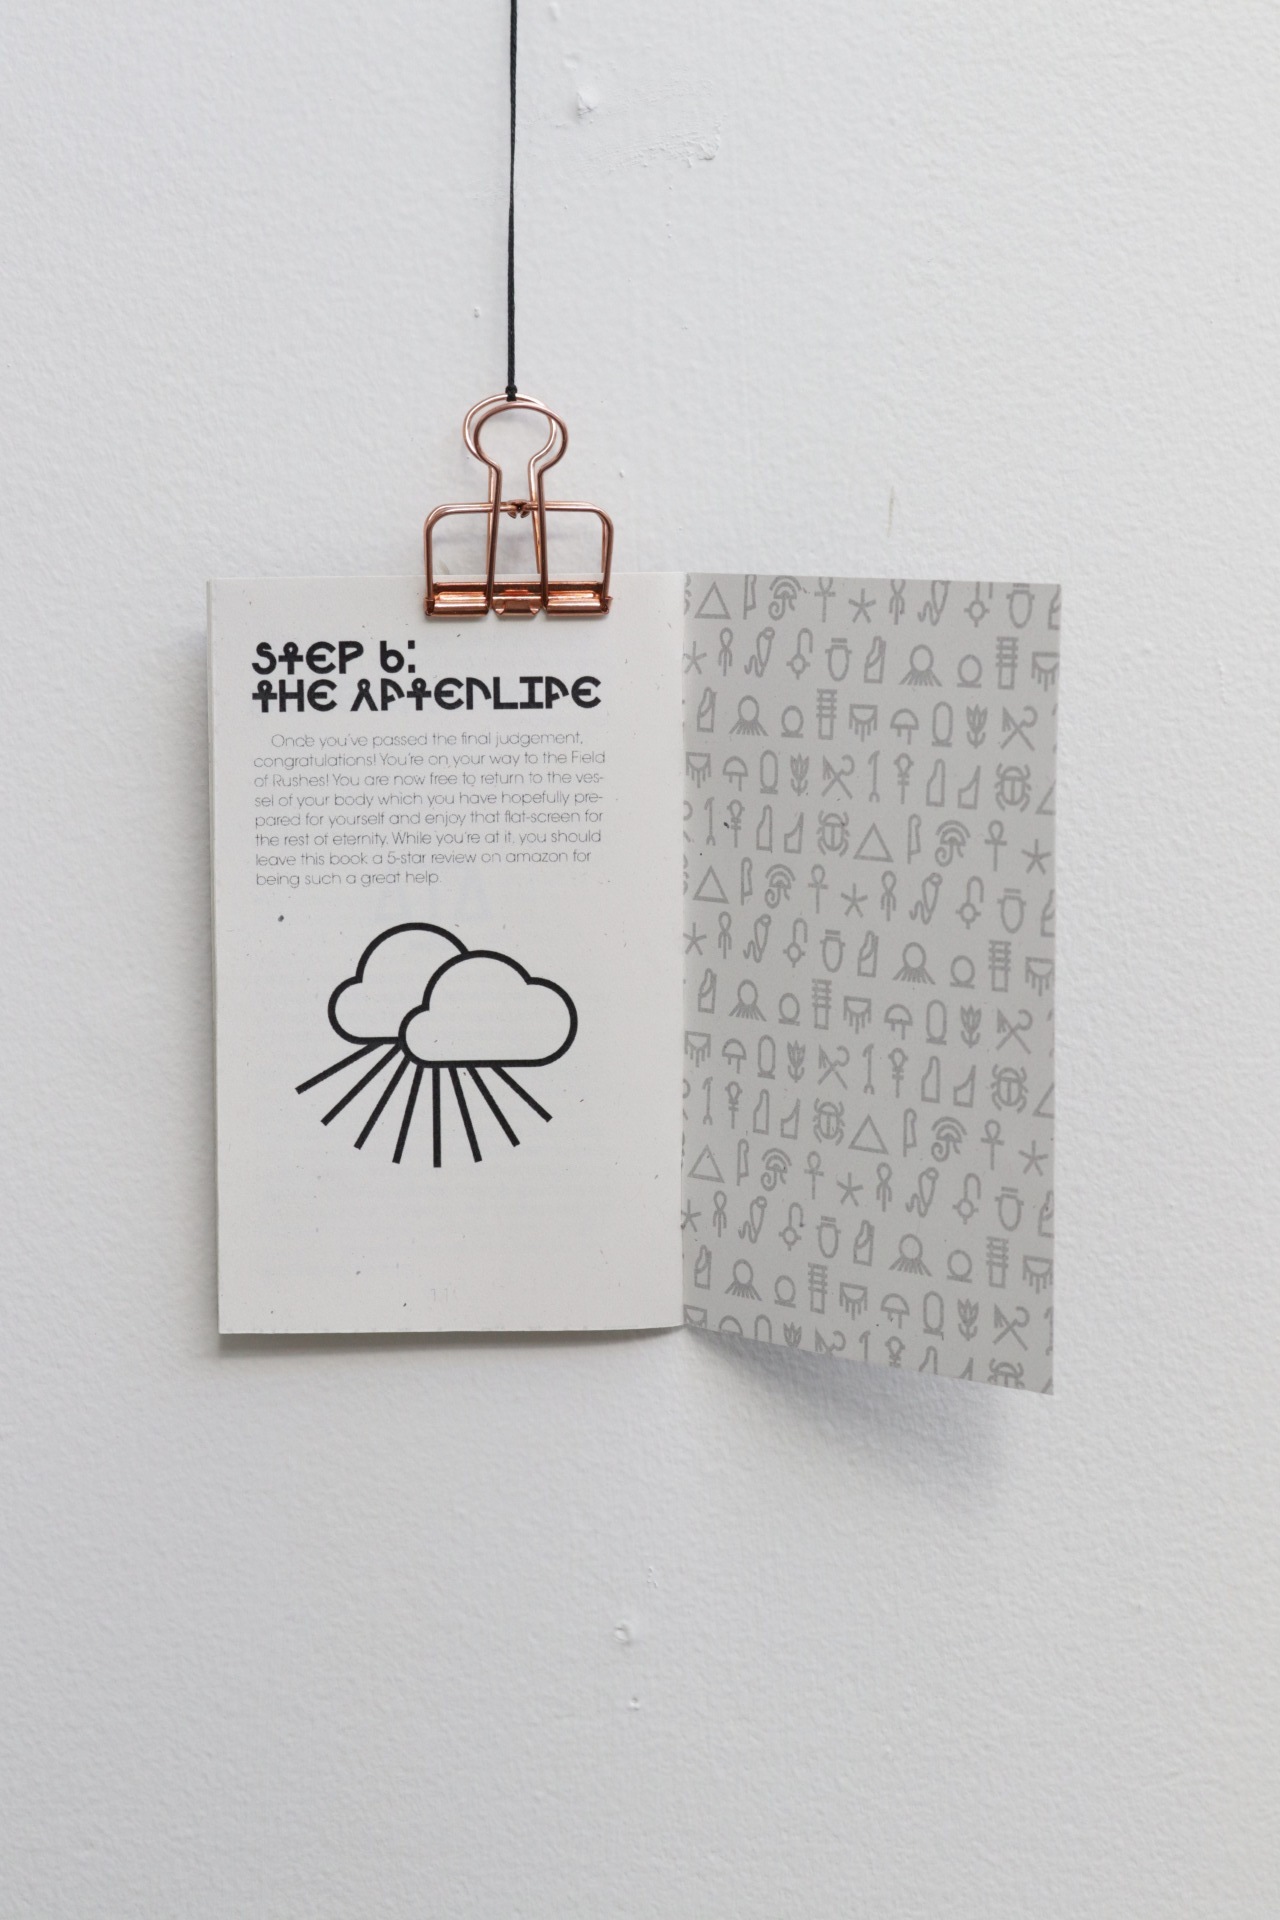 STEP 6:
THE AFTERLIFE
Once you've passed the final judgement,
congratulations! You're on your way to the Field
of Rushes! You are now free to return to the ves-
sel of your body which you have hopefully pre-
pared for yourself and enjoy that flat-screen for
the rest of eternity. While you're at it, you should
leave this book a 5-star review on amazon for
being such a great help.